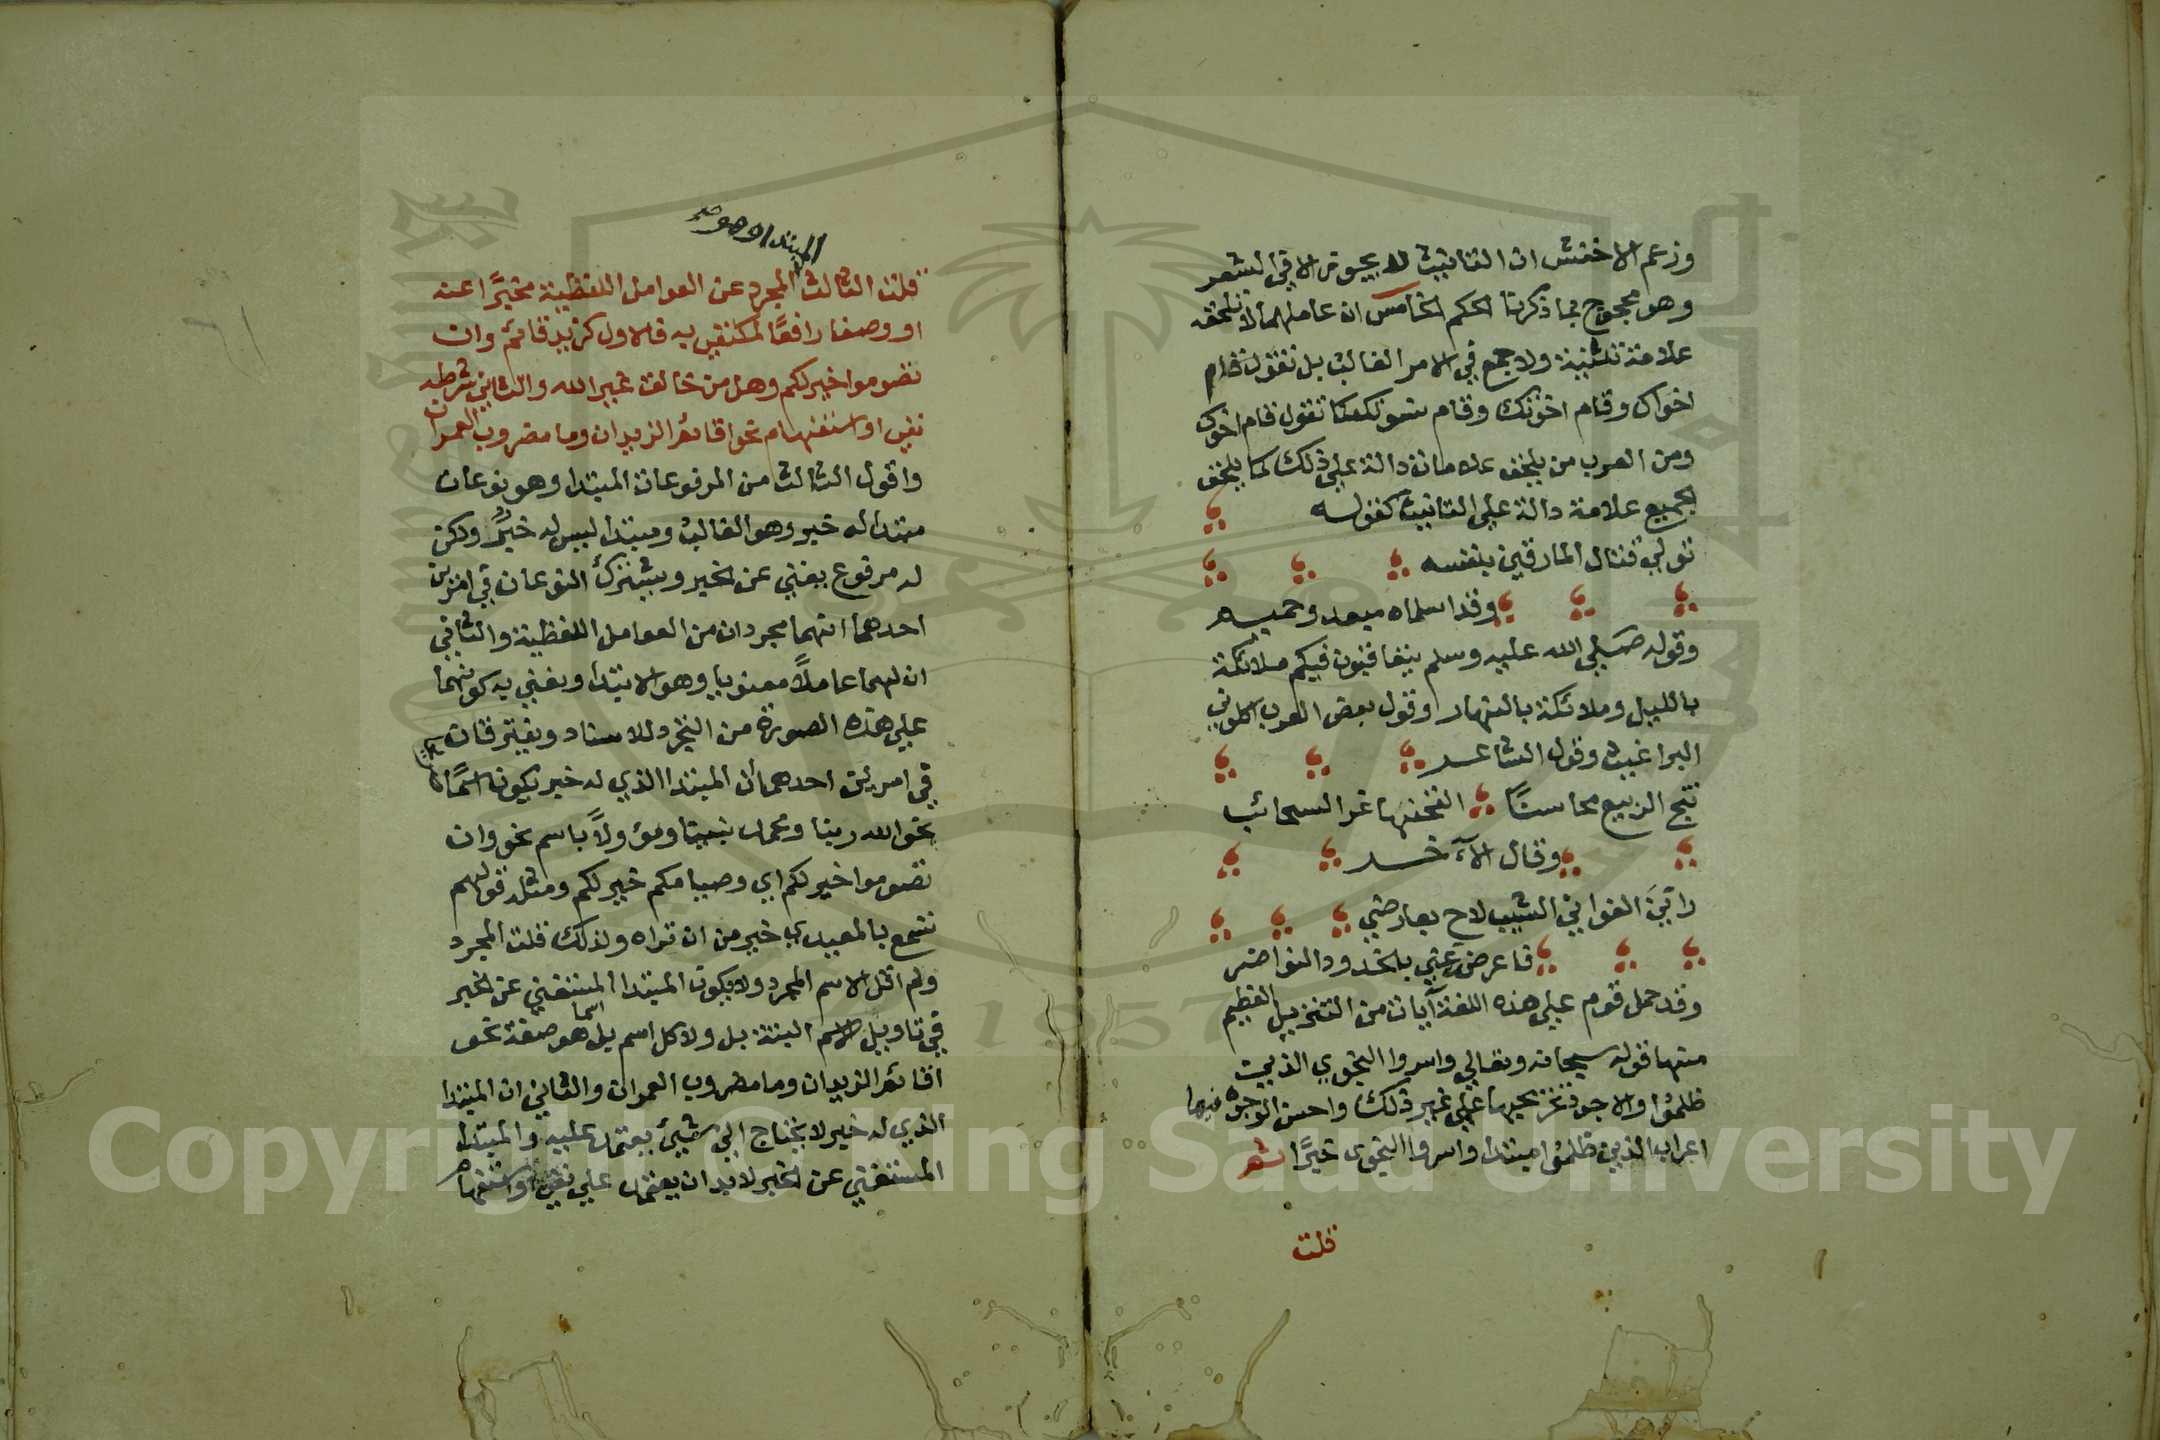 وزعم الاخفش ان التانيث لا يجوز الا في الشعر
وهو محجوج بما ذكرنا الحكم الخامس ان عاملهما لا تلحقه
علامة تثنية ولا جمع في الامر الغالب بل تقول قام
اخواك وقام اخوتك وقام نسوتك كما تقول قام اخوك
ومن العرب من يلحق علامات دالة علي ذلك كما يلحق
الجميع علامة دالة علي التانيث كقوله
تولي قتال المارقين بنفسه
وقد اسلماه مبعد وحميم
وقوله صلي الله عليه وسلم يتعاقبون فيكم ملائكة
بالليل وملائكة بالنهار وقول بعض العرب اكلوني
البراغيث وقول الشاعر
نتج الربيع محاسنًا القحنها غر السحائب
وقال الآخر
راين الغواني الشيب لاح بعارضي
فاعرضن عني بالخدود النواضر
وقد حمل قوم علي هذه اللغة آيات من التنزيل العظيم
منها قوله سبحانه وتعالي واسروا النجوي الذين
ظلموا والاجود تخريجها علي غير ذلك واحسن الوجوه فيها
اعراب الذين ظلموا مبتدا واسروا النجوى خبرًا
قلت
المبتدا وهو صح
قلت الثالث المجرد عن العوامل اللفظية مخبرًا عنه
او وصفا رافعًا لمكتفي به فالاول كزيد قائم وان
تصوموا خير لكم وهل من خالق غير الله والثاني شرطه
نفي او استفهام نحو اقائم الزيدان وما مضروب العمران
واقول الثالث من المرفوعات المبتدا وهو نوعان
مبتدا له خبر وهو الغالب ومبتدا ليس له خبرٌ ولكن
له مرفوع يغني عن الخبر ويشترك النوعان في امرين
احدهما انهما مجردان من العوامل اللفظية والثاني
ان لهما عاملًا معنويا وهو الابتدا ويعني به كونهما
علي هذه الصورة من التجرد للاسناد ويفترقان
في امرين احدهما ان المبتدا الذي له خبر يكون اسمًا
نحو الله ربنا ومحمد نبينا ومؤولًا باسم نحو وان
تصوموا خير لكم اي وصيامكم خير لكم ومثله قولهم
تسمع بالمعيدي خير من ان تراه ولذلك قلت المجرد
ولم اقل الاسم المجرد ولا يكون المبتدا المستغني عن الخبر
في تاويل الاسم البتة بل ولا كل اسم بل اسما هو صفة نحو
اقائم الزيدان وما مضروب العمران والثاني ان المبتدا
الذي له خبر لا يحتاج الي شيئ يعتمد عليه والمبتدا
المستغني عن الخبر لا بد ان يعتمد علي نفي او استفهام
Copyright © King Saud University
1957